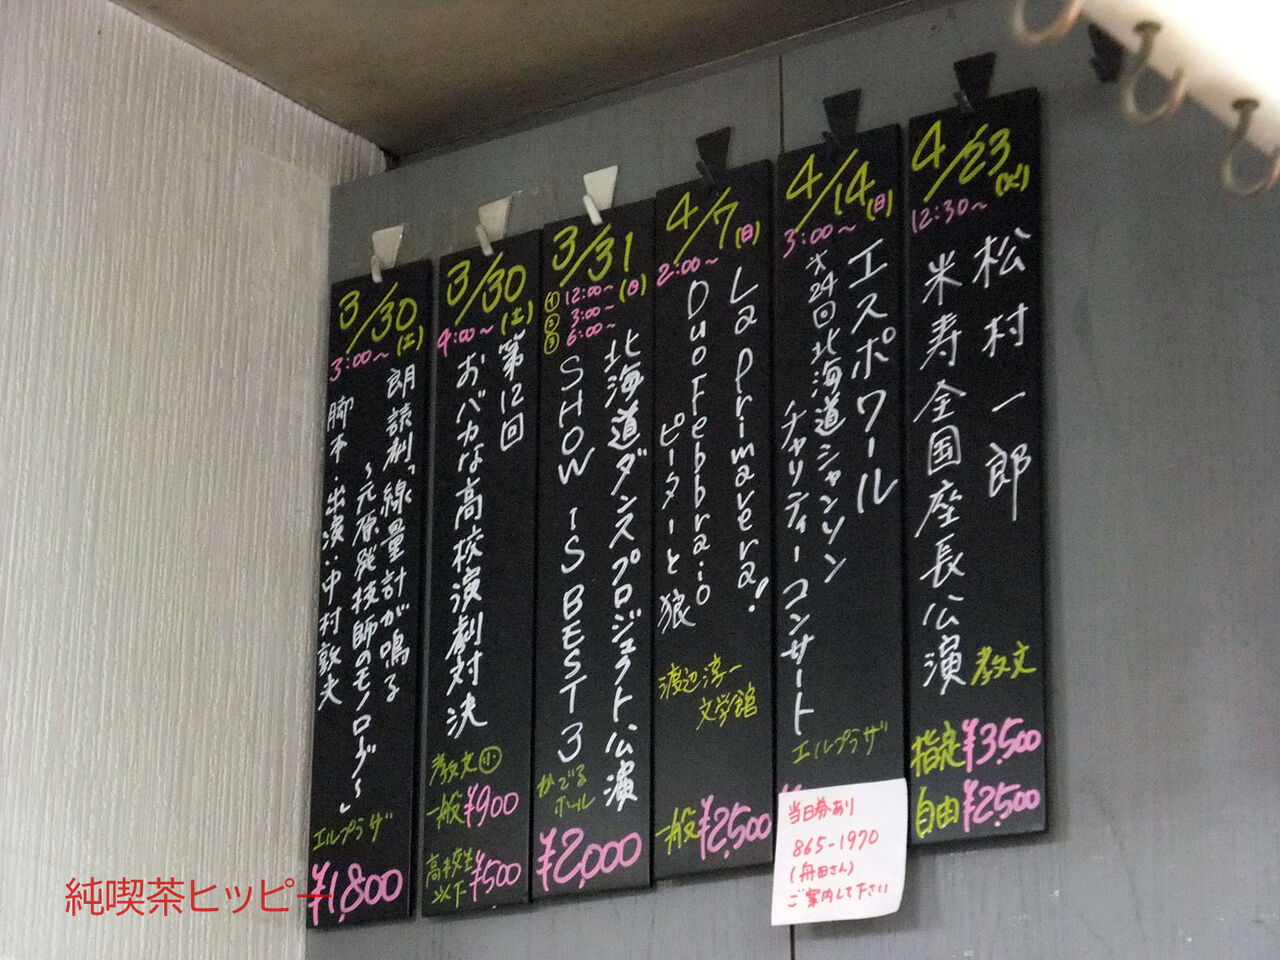 4/23
(火)
12:30~
松村一郎
米寿全国座長公演
教文
指定¥3,500
自由¥2,500
4/14
(日)
3:00~
エスポワール
第24回北海道シャンソン
チャリティーコンサート
エルプラザ
当日券あり
865-1970
(舟田さん)
ご案内して下さい
4/7
(日)
2:00~
La Primavera!
Duo Febbraio
ピーターと狼
渡辺淳一
文学館
一般¥2,500
3/31
(日)
①12:00~
②3:00~
③6:00~
北海道ダンスプロジェクト公演
SHOW IS BEST 3
かでる
ホール
¥2,000
3/30
(土)
4:00~
第12回
おバカな高校演劇対決
教文㊙小
一般¥900
高校生
以下¥500
3/30
(土)
3:00~
朗読劇「線量計が鳴る
~元原発技師のモノローグ~」
脚本・出演:中村敦夫
エルプラザ
¥1,800
純喫茶ヒッピー